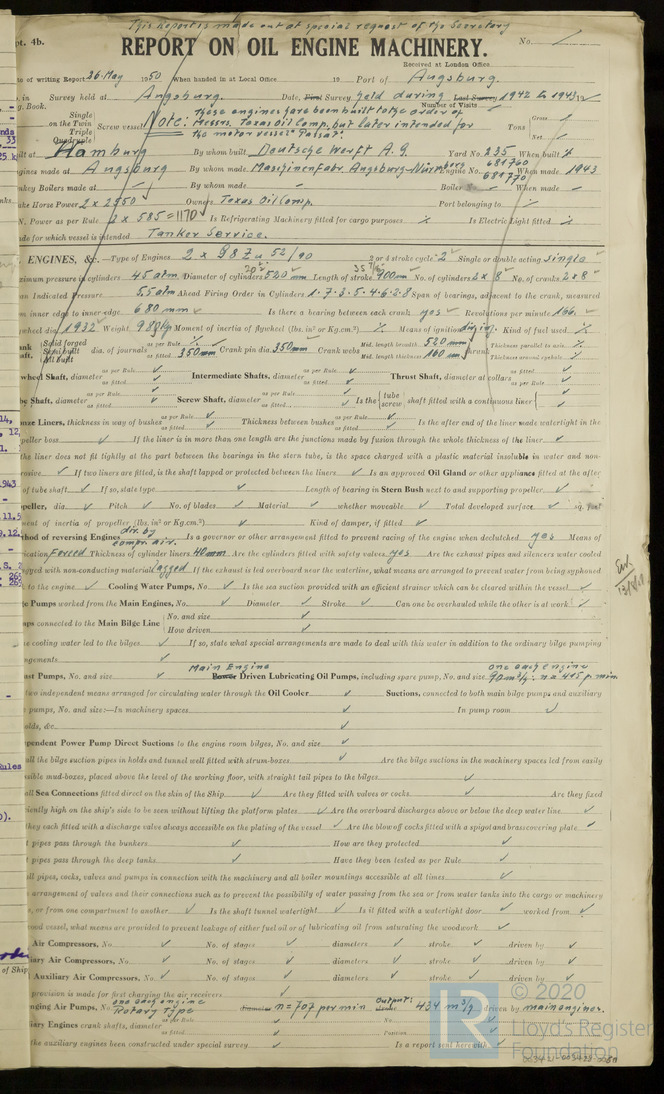 This Report is made out at special request of the Secretary
pt. 4b.
No.
REPORT ON OIL ENGINE MACHINERY.
Received at London Office
te of writing Report 26. May 1950 When handed in at Local Office 19 Port of Augsburg.
in Survey held at Augsburg. Date, First Survey held during Last Survey 1942 to 1943 19
g. Book. Number of Visits
Single
on the Twin Screw vessel
Triple
Quadruple
Note: These engines have been built to the order of
Messrs. Texas Oil Comp. but later intended for
the motor vessel "Passat".
Tons
Gross
Net
ilt at Hamburg By whom built Deutsche Werft A.G. Yard No. 235 When built
gines made at Augsburg By whom made Maschinenfabr. Augsburg-Nürnberg Engine No. 681760 681770 When made 1943
nkey Boilers made at By whom made Boiler No. When made
ke Horse Power 2 x 2550 Owners Texas Oil Comp. Port belonging to
N. Power as per Rule 2 x 585 = 1170 Is Refrigerating Machinery fitted for cargo purposes Is Electric Light fitted
ade for which vessel is intended Tanker Service.
ENGINES, &c.—Type of Engines 2 x G8Zu 52/90 2 or 4 stroke cycle 2 Single or double acting single
ximum pressure in cylinders 45 atm Diameter of cylinders 520 mm Length of stroke 900 mm No. of cylinders 2 x 8 No. of cranks 2 x 8
an Indicated Pressure 5,5 atm Ahead Firing Order in Cylinders 1-7-3-5-4-6-2-8 Span of bearings, adjacent to the crank, measured
m inner edge to inner edge 680 mm Is there a bearing between each crank yes Revolutions per minute 166
wheel dia. 1932 Weight Moment of inertia of flywheel (lbs. in² or Kg.cm.²) Means of ignition Kind of fuel used
ank Solid forged dia. of journals as per Rule Crank pin dia. 350 mm Crank webs Mid. length breadth 520 mm Thickness parallel to axis
aft, Semi built as fitted 350 mm Mid. length thickness 160 mm shrunk Thickness around eyehole
All built
wheel Shaft, diameter as per Rule Intermediate Shafts, diameter as per Rule Thrust Shaft, diameter at collars as per Rule
as fitted as fitted as fitted
be Shaft, diameter as per Rule Screw Shaft, diameter as per Rule Is the { tube screw } shaft fitted with a continuous liner
as fitted as fitted
nze Liners, thickness in way of bushes as per Rule Thickness between bushes as per Rule Is the after end of the liner made watertight in the
as fitted as fitted
peller boss If the liner is in more than one length are the junctions made by fusion through the whole thickness of the liner
the liner does not fit tightly at the part between the bearings in the stern tube, is the space charged with a plastic material insoluble in water and non-
rosive If two liners are fitted, is the shaft lapped or protected between the liners Is an approved Oil Gland or other appliance fitted at the after
of tube shaft If so, state type Length of bearing in Stern Bush next to and supporting propeller
peller, dia. Pitch No. of blades Material whether moveable Total developed surface sq. feet
ment of inertia of propeller (lbs. in² or Kg.cm.²) Kind of damper, if fitted
hod of reversing Engines dir. by compr. air. Is a governor or other arrangement fitted to prevent racing of the engine when declutched yes Means of
ication forced Thickness of cylinder liners 40 mm Are the cylinders fitted with safety valves yes Are the exhaust pipes and silencers water cooled
gged with non-conducting material lagged If the exhaust is led overboard near the waterline, what means are arranged to prevent water from being syphoned
to the engine Cooling Water Pumps, No. Is the sea suction provided with an efficient strainer which can be cleared within the vessel
ge Pumps worked from the Main Engines, No. Diameter Stroke Can one be overhauled while the other is at work
mps connected to the Main Bilge Line { No. and size
How driven
e cooling water led to the bilges If so, state what special arrangements are made to deal with this water in addition to the ordinary bilge pumping
ngements
ast Pumps, No. and size Main Engine Power Driven Lubricating Oil Pumps, including spare pump, No. and size one each engine 90 m³/h. n = 415 p. min.
two independent means arranged for circulating water through the Oil Cooler Suctions, connected to both main bilge pumps and auxiliary
pumps, No. and size:—In machinery spaces In pump room
olds, &c.
ependent Power Pump Direct Suctions to the engine room bilges, No. and size
all the bilge suction pipes in holds and tunnel well fitted with strum-boxes Are the bilge suctions in the machinery spaces led from easily
ssible mud-boxes, placed above the level of the working floor, with straight tail pipes to the bilges
all Sea Connections fitted direct on the skin of the Ship Are they fitted with valves or cocks Are they fixed
iently high on the ship's side to be seen without lifting the platform plates Are the overboard discharges above or below the deep water line
they each fitted with a discharge valve always accessible on the plating of the vessel Are the blow off cocks fitted with a spigot and brass covering plate
t pipes pass through the bunkers How are they protected
pipes pass through the deep tanks Have they been tested as per Rule
all pipes, cocks, valves and pumps in connection with the machinery and all boiler mountings accessible at all times
arrangement of valves and their connections such as to prevent the possibility of water passing from the sea or from water tanks into the cargo or machinery
s, or from one compartment to another Is the shaft tunnel watertight Is it fitted with a watertight door worked from
wood vessel, what means are provided to prevent leakage of either fuel oil or of lubricating oil from saturating the woodwork
Air Compressors, No. No. of stages diameters stroke driven by
iary Air Compressors, No. No. of stages diameters stroke driven by
Auxiliary Air Compressors, No. No. of stages diameters stroke driven by
provision is made for first charging the air receivers
nging Air Pumps, No. one each engine Rotary Type diameter n = 707 per min Output: 434 m³/ driven by main engines.
iary Engines crank shafts, diameter as per Rule No.
as fitted Position
the auxiliary engines been constructed under special survey Is a report sent herewith
© 2020
Lloyd's Register
Foundation
LR